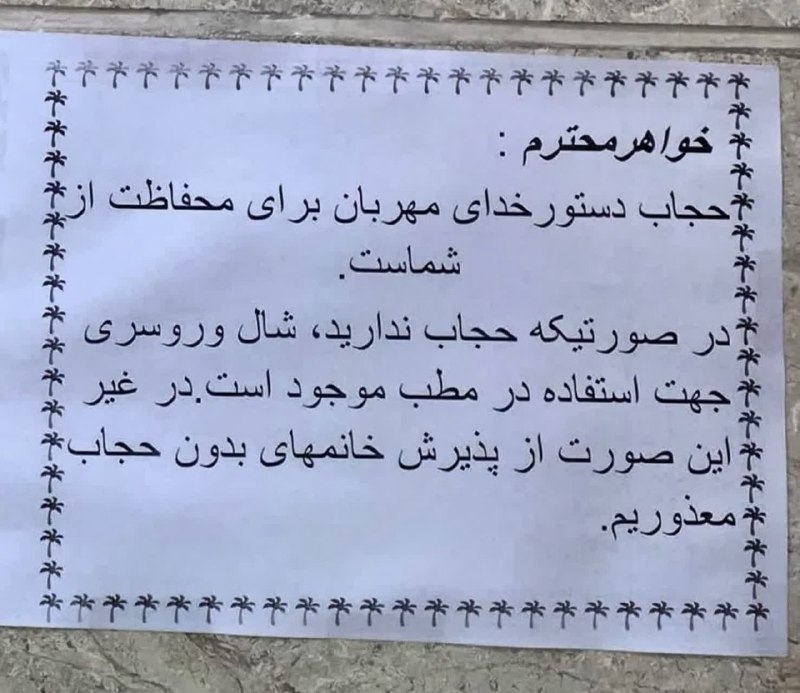 خواهرمحترم :
حجاب دستورخدای مهربان برای محافظت از
شماست.
در صورتیکه حجاب ندارید، شال وروسری
جهت استفاده در مطب موجود است.در غیر
این صورت از پذیرش خانمهای بدون حجاب
معذوریم.